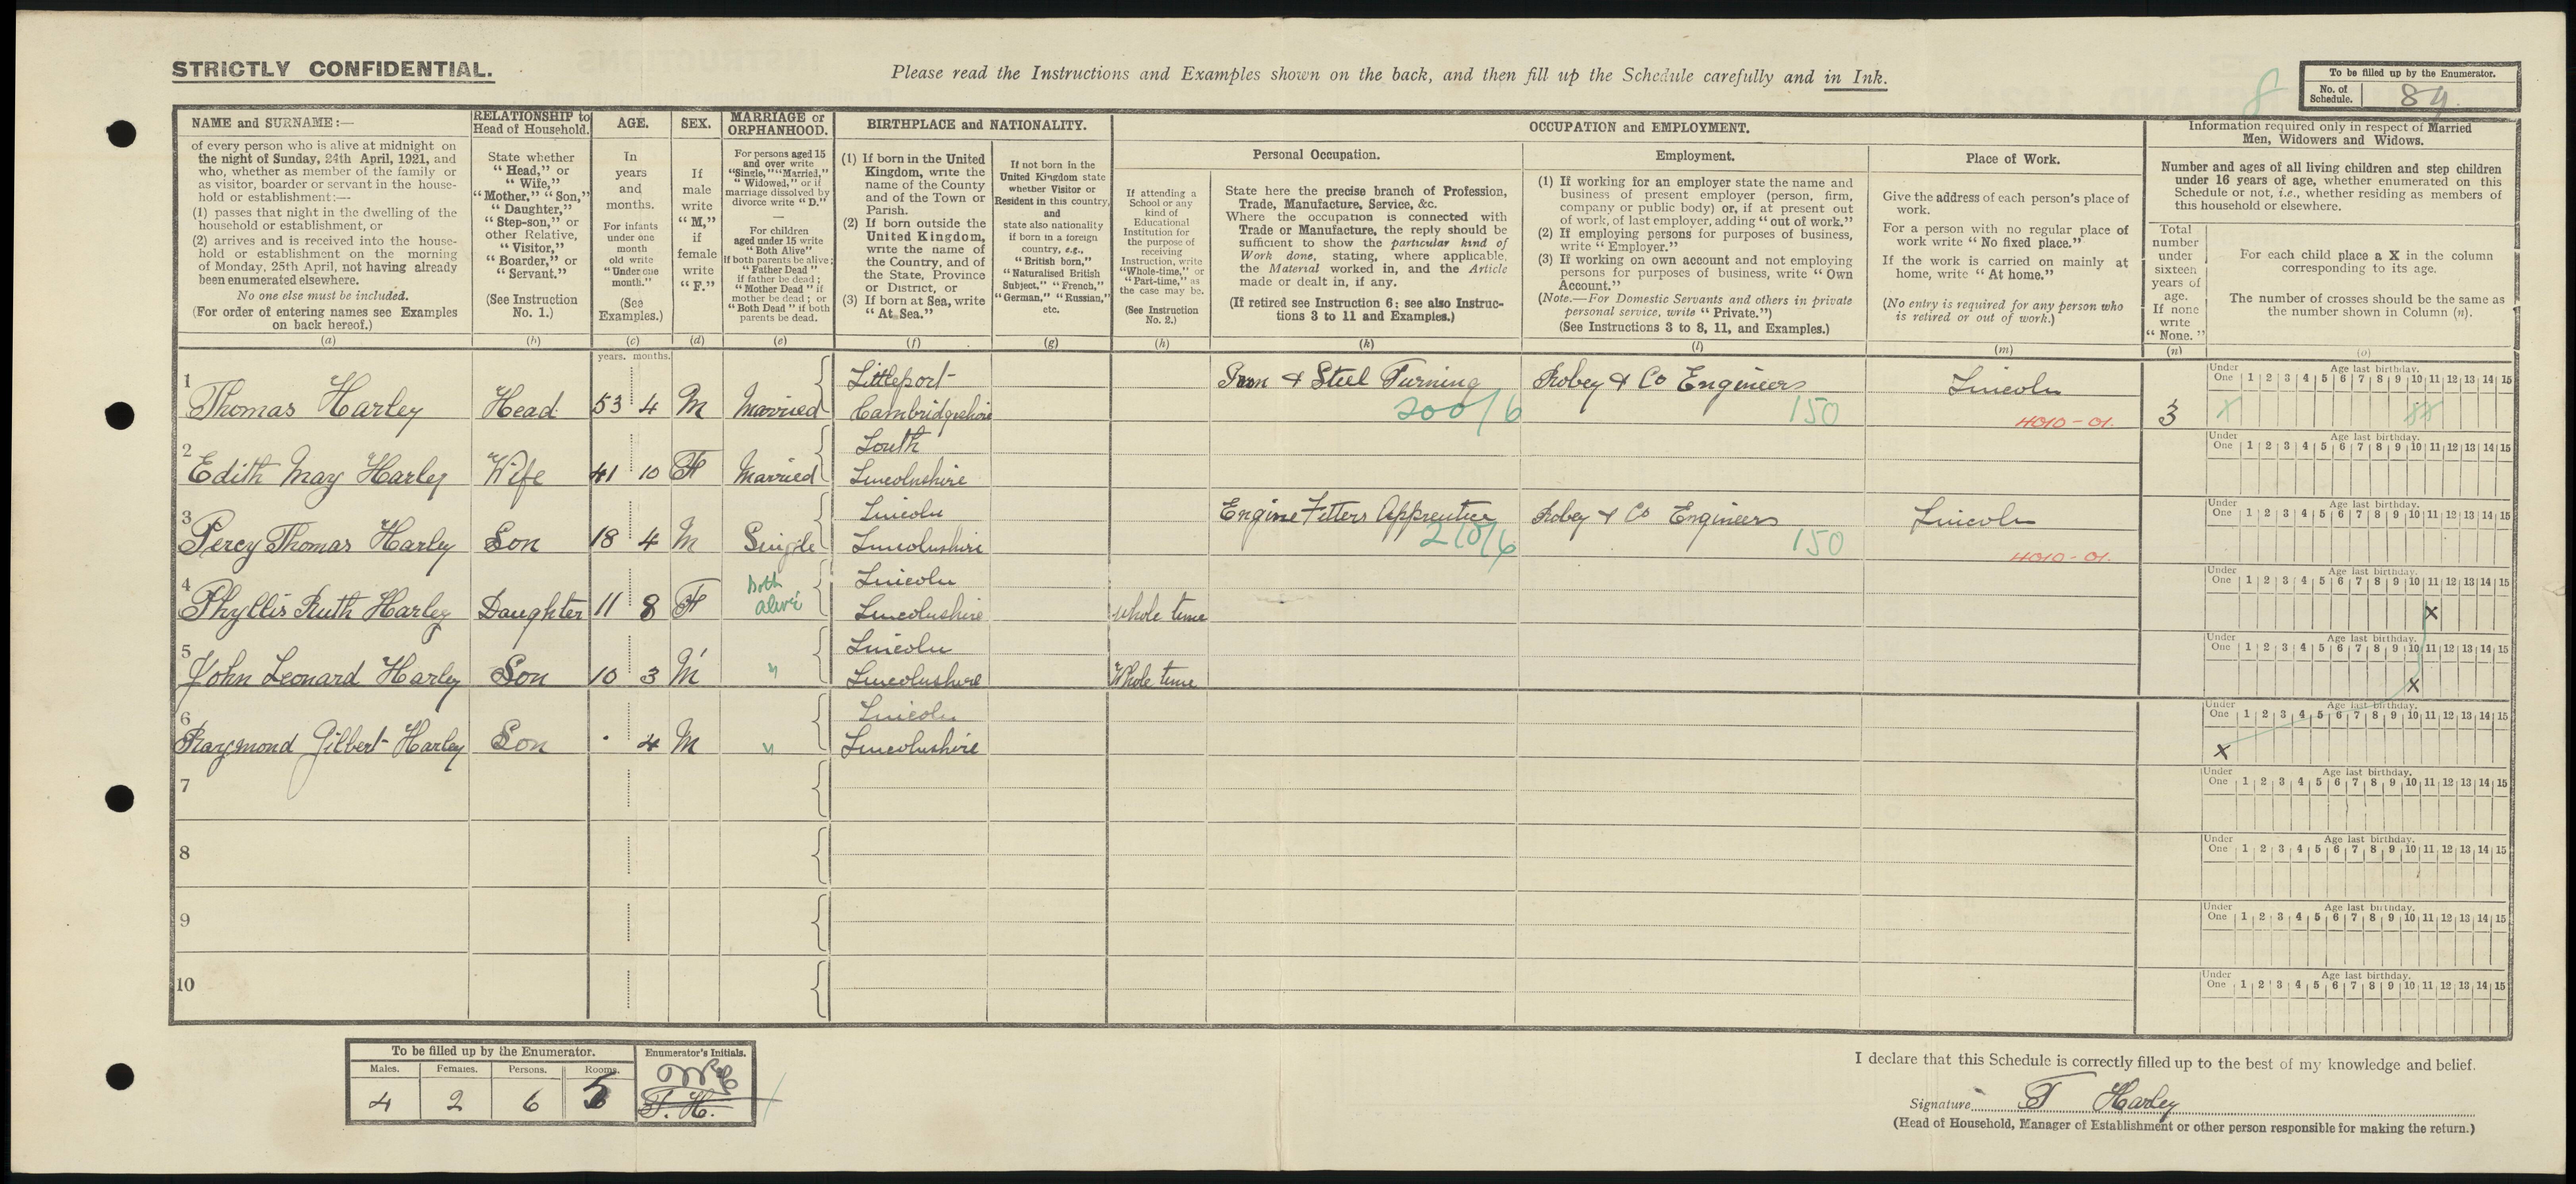 STRICTLY CONFIDENTIAL.
Please read the Instructions and Examples shown on the back, and then fill up the Schedule carefully and in Ink.
8
To be filled up by the Enumerator.
No. of Schedule.
84
NAME and SURNAME:—
of every person who is alive at midnight on
the night of Sunday, 24th April, 1921, and
who, whether as member of the family or
as visitor, boarder or servant in the house-
hold or establishment:—
(1) passes that night in the dwelling of the
household or establishment, or
(2) arrives and is received into the house-
hold or establishment on the morning
of Monday, 25th April, not having already
been enumerated elsewhere.
No one else must be included.
(For order of entering names see Examples
on back hereof.)
(a)
RELATIONSHIP to
Head of Household.
State whether
"Head," or
"Wife,"
"Mother," "Son,"
"Daughter,"
"Step-son," or
other Relative,
"Visitor,"
"Boarder," or
"Servant."
(See Instruction
No. 1.)
(b)
AGE.
In
years
and
months.
For infants
under one
month
old write
"Under one
month."
(See
Examples.)
(c)
SEX.
If
male
write
"M,"
if
female
write
"F."
(d)
MARRIAGE or
ORPHANHOOD.
For persons aged 15
and over write
"Single," "Married,"
"Widowed," or if
marriage dissolved by
divorce write "D."
—
For children
aged under 15 write
"Both Alive"
if both parents be alive;
"Father Dead"
if father be dead;
"Mother Dead" if
mother be dead; or
"Both Dead" if both
parents be dead.
(e)
BIRTHPLACE and NATIONALITY.
(1) If born in the United
Kingdom, write the
name of the County
and of the Town or
Parish.
(2) If born outside the
United Kingdom,
write the name of
the Country, and of
the State, Province
or District, or
(3) If born at Sea, write
"At Sea."
(f)
If not born in the
United Kingdom state
whether Visitor or
Resident in this country,
and
state also nationality
if born in a foreign
country, e.g.,
"British born,"
"Naturalised British
Subject," "French,"
"German," "Russian,"
etc.
(g)
OCCUPATION and EMPLOYMENT.
Personal Occupation.
If attending a
School or any
kind of
Educational
Institution for
the purpose of
receiving
Instruction, write
"Whole-time," or
"Part-time," as
the case may be.
(See Instruction
No. 2.)
(h)
State here the precise branch of Profession,
Trade, Manufacture, Service, &c.
Where the occupation is connected with
Trade or Manufacture, the reply should be
sufficient to show the particular kind of
Work done, stating, where applicable,
the Material worked in, and the Article
made or dealt in, if any.
(If retired see Instruction 6; see also Instruc-
tions 3 to 11 and Examples.)
(k)
Employment.
(1) If working for an employer state the name and
business of present employer (person, firm,
company or public body) or, if at present out
of work, of last employer, adding "out of work."
(2) If employing persons for purposes of business,
write "Employer."
(3) If working on own account and not employing
persons for purposes of business, write "Own
Account."
(Note.—For Domestic Servants and others in private
personal service, write "Private.")
(See Instructions 3 to 8, 11, and Examples.)
(l)
Place of Work.
Give the address of each person's place of
work.
For a person with no regular place of
work write "No fixed place."
If the work is carried on mainly at
home, write "At home."
(No entry is required for any person who
is retired or out of work.)
(m)
Information required only in respect of Married
Men, Widowers and Widows.
Number and ages of all living children and step children
under 16 years of age, whether enumerated on this
Schedule or not, i.e., whether residing as members of
this household or elsewhere.
Total
number
under
sixteen
years of
age.
If none
write
"None."
(n)
For each child place a X in the column
corresponding to its age.
The number of crosses should be the same as
the number shown in Column (n).
(o)
years. months.
1 Thomas Harley Head 53 4 M Married Littleport Cambridgeshire Iron & Steel Turning 200/6 Robey & Co Engineers 150 Lincoln 4010-01. 3
Under One 1 2 3 4 5 6 7 8 9 10 11 12 13 14 15 Age last birthday.
X XX
2 Edith May Harley Wife 41 10 F Married Louth Lincolnshire
Under One 1 2 3 4 5 6 7 8 9 10 11 12 13 14 15 Age last birthday.
3 Percy Thomas Harley Son 18 4 M Single Lincoln Lincolnshire Engine Fitters Apprentice 210/6 Robey & Co Engineers 150 Lincoln 4010-01.
Under One 1 2 3 4 5 6 7 8 9 10 11 12 13 14 15 Age last birthday.
4 Phyllis Ruth Harley Daughter 11 8 F both alive Lincoln Lincolnshire whole time
Under One 1 2 3 4 5 6 7 8 9 10 11 12 13 14 15 Age last birthday.
X
5 John Leonard Harley Son 10 3 M " Lincoln Lincolnshire Whole time
Under One 1 2 3 4 5 6 7 8 9 10 11 12 13 14 15 Age last birthday.
X
6 Raymond Gilbert Harley Son . 4 M " Lincoln Lincolnshire
Under One 1 2 3 4 5 6 7 8 9 10 11 12 13 14 15 Age last birthday.
X
7
Under One 1 2 3 4 5 6 7 8 9 10 11 12 13 14 15 Age last birthday.
8
Under One 1 2 3 4 5 6 7 8 9 10 11 12 13 14 15 Age last birthday.
9
Under One 1 2 3 4 5 6 7 8 9 10 11 12 13 14 15 Age last birthday.
10
Under One 1 2 3 4 5 6 7 8 9 10 11 12 13 14 15 Age last birthday.
To be filled up by the Enumerator.
Enumerator's Initials.
Males. Females. Persons. Rooms.
4 2 6 5
T. H.
I declare that this Schedule is correctly filled up to the best of my knowledge and belief.
Signature T Harley
(Head of Household, Manager of Establishment or other person responsible for making the return.)